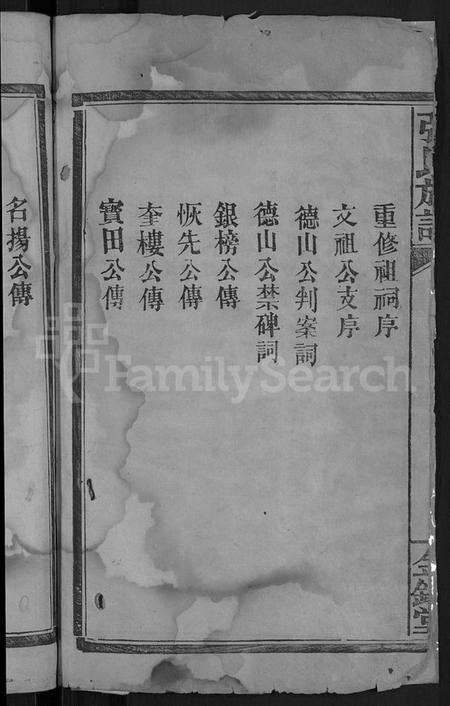 張氏族譜
金鑑堂
重修祖祠序
文祖公支序
德山公判案詞
德山公禁碑詞
銀榜公傳
恢先公傳
奎樓公傳
寶田公傳
名揚公傳
FamilySearch